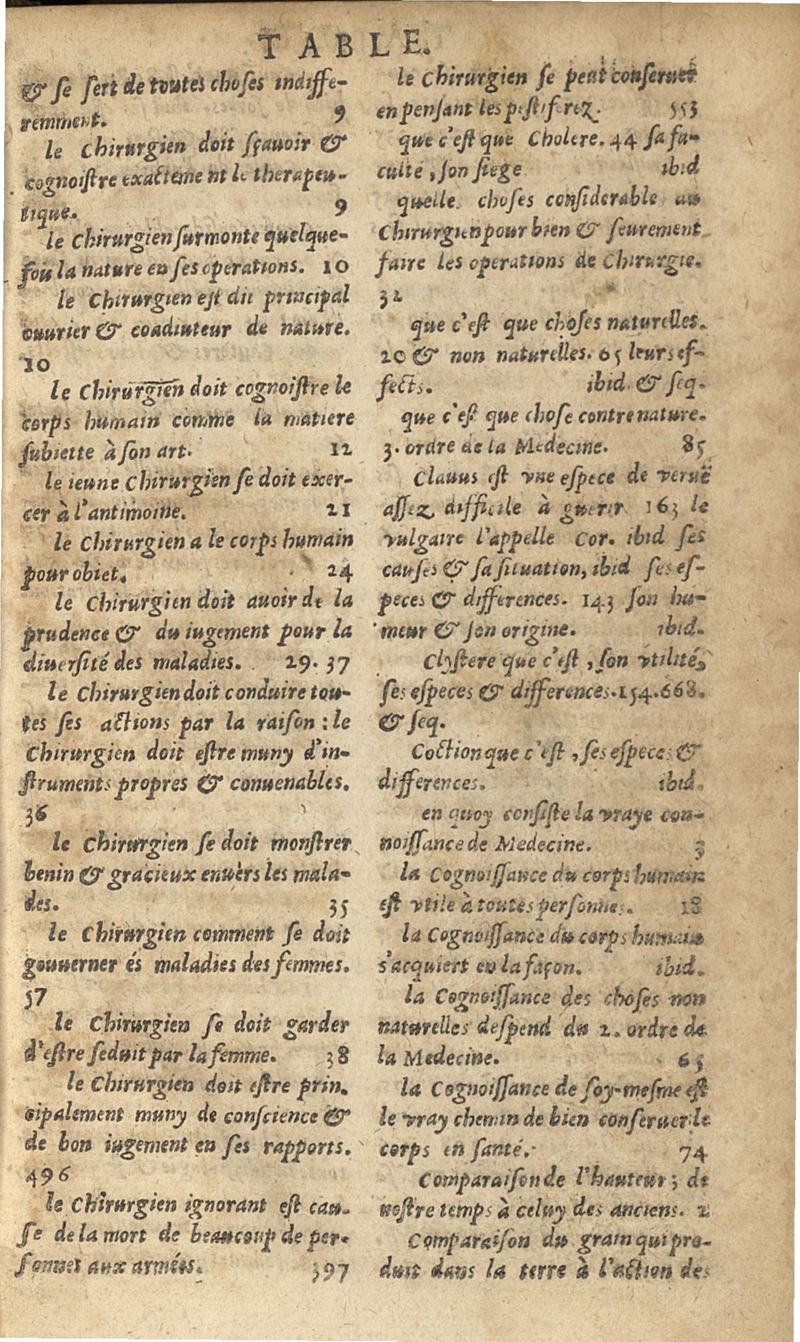 TABLE.
& se sert de toutes choses indiffe-
remment. 9
le Chirurgien doit sçauoir &
cognoistre exactement le therapeu-
tique. 9
le Chirurgien surmonte quelque-
fois la nature en ses operations. 10
le Chirurgien est dit principal
ouurier & coadiuteur de nature.
10
le Chirurgien doit cognoistre le
corps humain comme la matiere
subiette à son art. 12
le ieune Chirurgien se doit exer-
cer à l'antimoine. 21
le Chirurgien a le corps humain
pour obiet. 24
le Chirurgien doit auoir de la
prudence & du iugement pour la
diuersité des maladies. 29. 37
le Chirurgien doit conduire tou-
tes ses actions par la raison : le
Chirurgien doit estre muny d'in-
struments propres & conuenables.
36
le Chirurgien se doit monstrer
benin & gracieux enuèrs les mala-
des. 35
le Chirurgien comment se doit
gouuerner és maladies des femmes.
57
le Chirurgien se doit garder
d'estre seduit par la femme. 38
le Chirurgien doit estre prin.
cipalement muny de conscience &
de bon iugement en ses rapports.
496
le Chirurgien ignorant est cau-
se de la mort de beaucoup de per-
sonnes aux armées. 397
le Chirurgien se peut conseruer
en pensant les pestiferez. 553
que c'est que Cholere. 44 sa fa-
culté, son siege ibid
quelle choses considerable au
Chirurgien pour bien & seurement
faire les operations de Chirurgie.
32
que c'est que choses naturelles.
20 & non naturelles. 65 leurs ef-
fects. ibid & seq.
que c'est que chose contre nature.
3. ordre de la Medecine. 85
Clauus est vne espece de veruë
assez difficile à guerir 163 le
vulgaire l'appelle Cor. ibid ses
causes & sa situation, ibid ses es-
peces & differences. 143 son hu-
meur & son origine. ibid.
Clystere que c'est, son vtilité,
ses especes & differences. 154. 668.
& seq.
Coction que c'est, ses especes &
differences. ibid.
en quoy consiste la vraye con-
noissance de Medecine. 3
la Cognoissance du corps humain
est vtile à toutes personnes. 18
la Cognoissance du corps humain
s'acquiert en la façon. ibid.
la Cognoissance des choses non
naturelles despend du 2. ordre de
la Medecine. 65
la Cognoissance de soy-mesme est
le vray chemin de bien conseruer le
corps en santé. 74
Comparaison de l'hauteur ; de
nostre temps à celuy des anciens. 2
Comparaison du grain qui pro-
duit dans la terre à l'action des